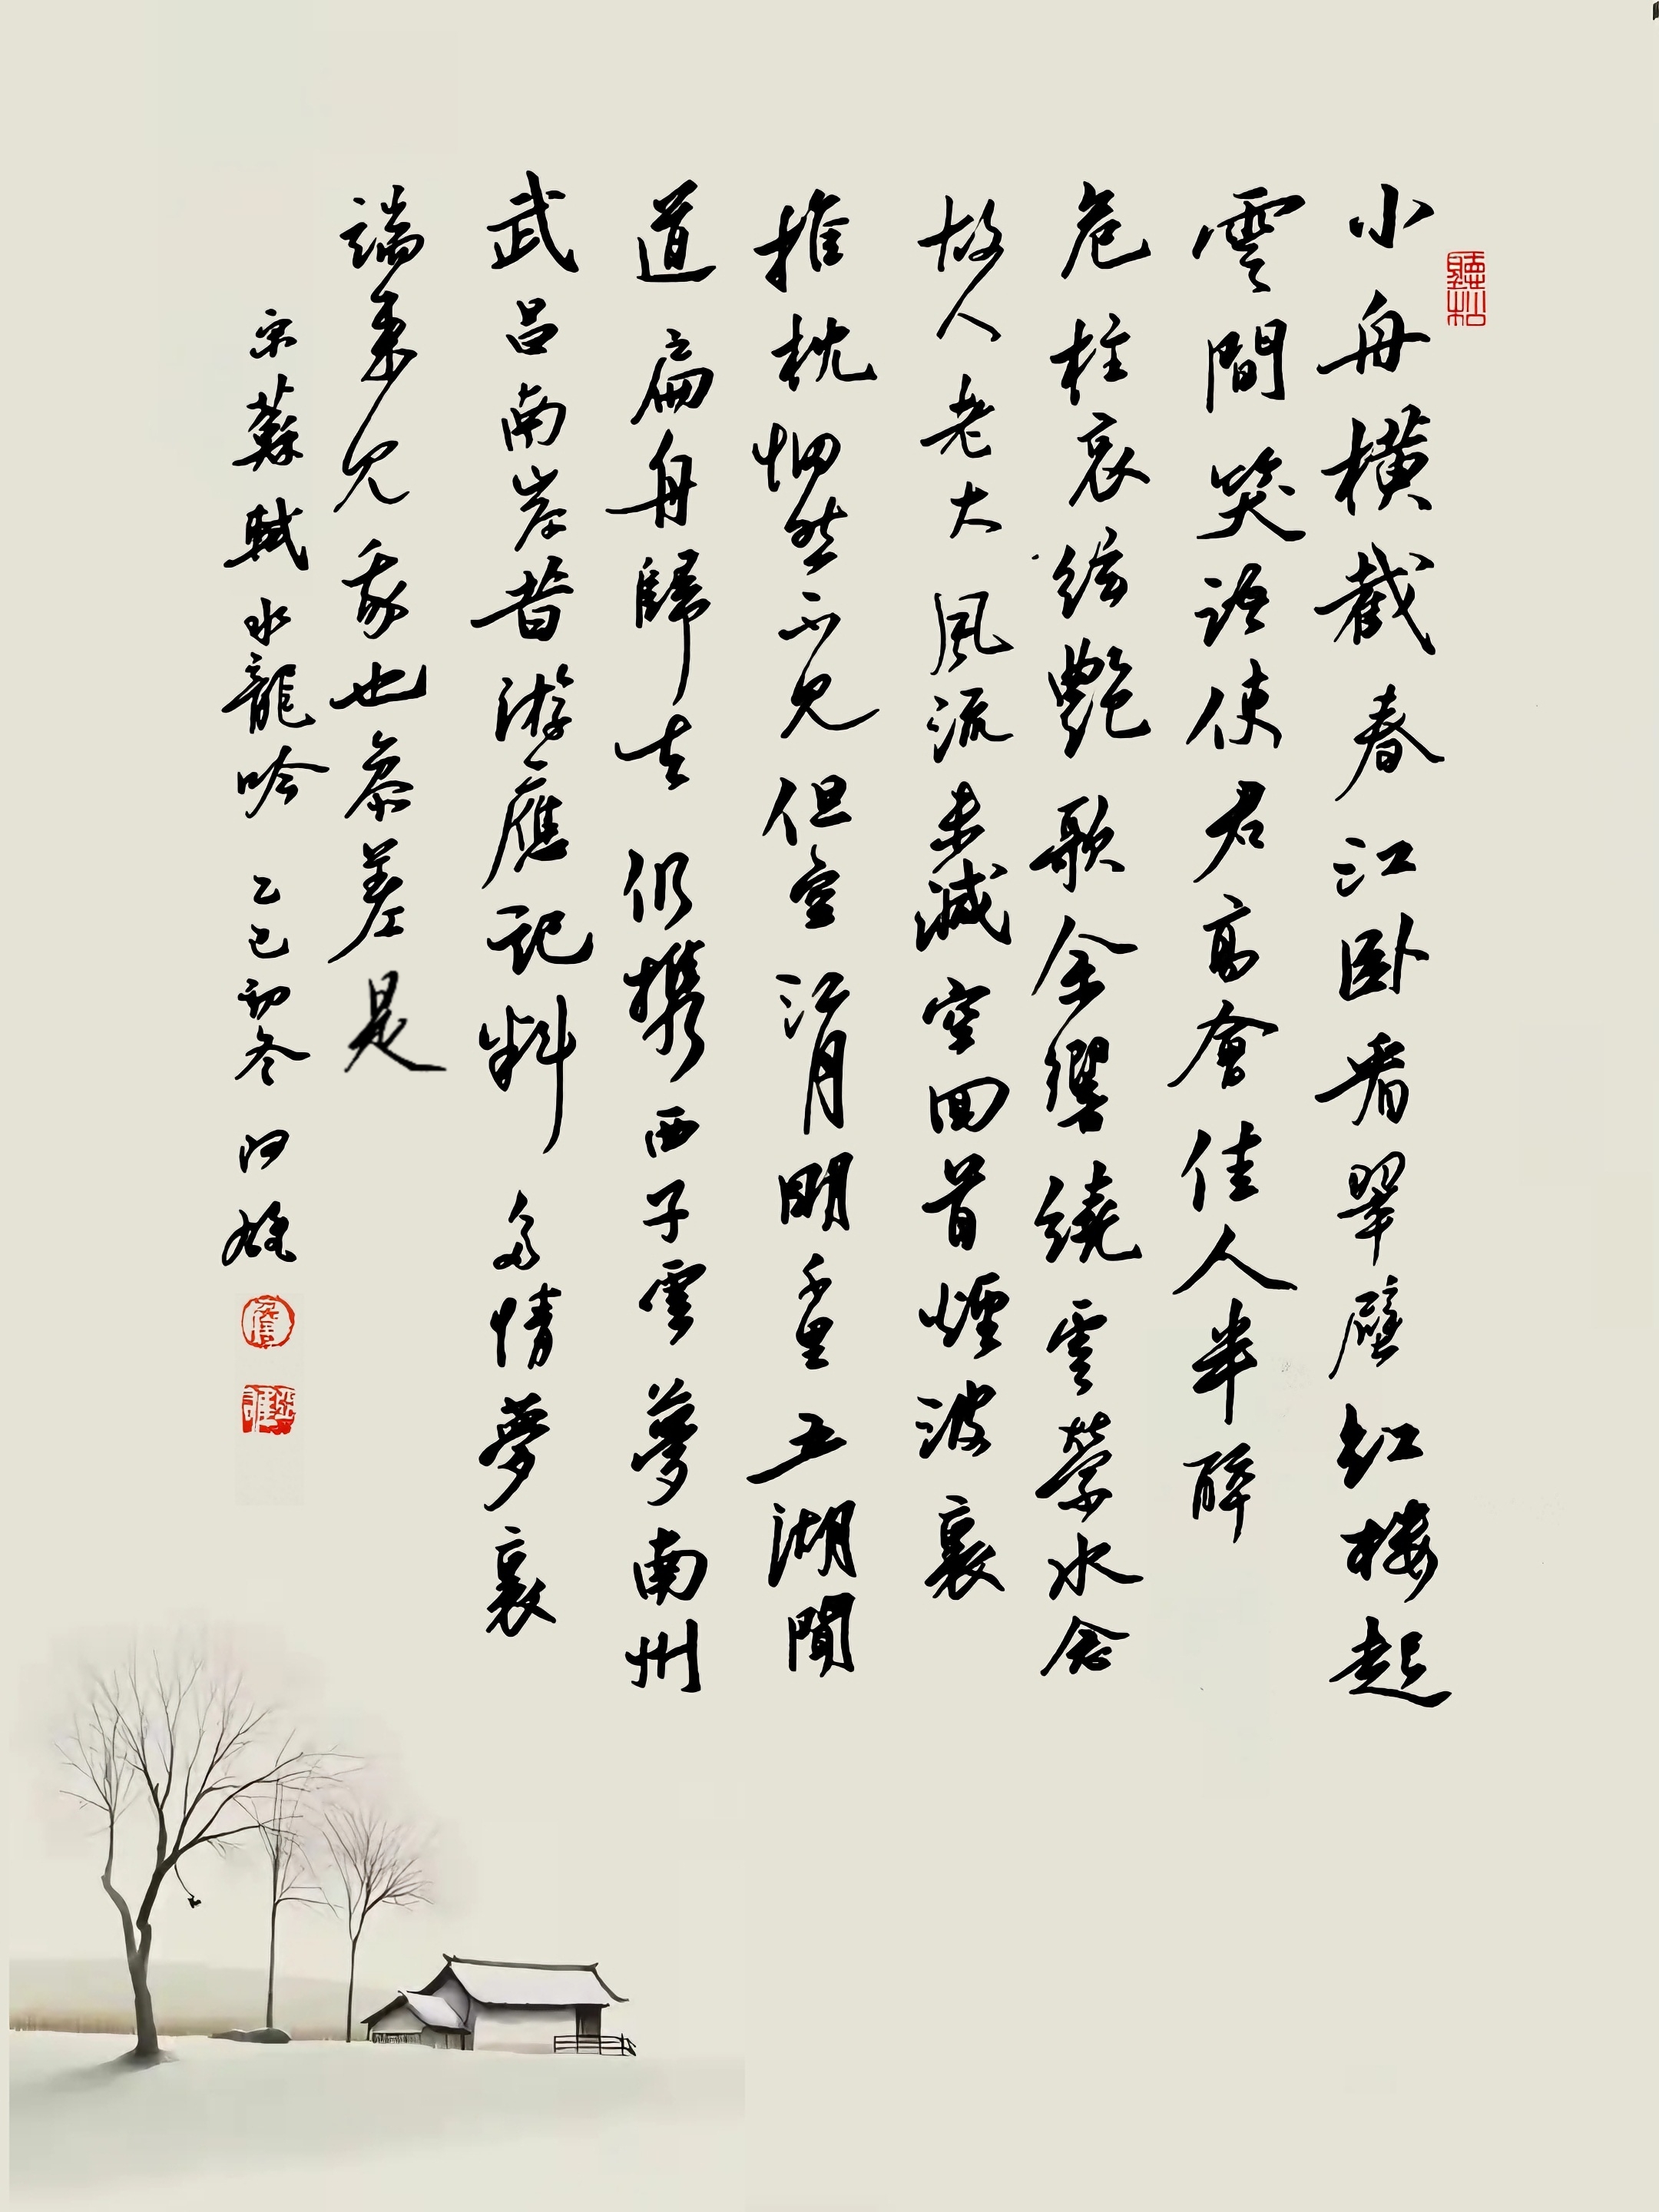 聽松
小舟橫截春江卧看翠壁紅樓起
雲間笑語使君高會佳人半醉
危柱哀絃艷歌余響繞雲縈水念
故人老大風流未減空回首煙波裏
推枕惘然不見但空江月明千里五湖聞
道扁舟歸去仍携西子雲夢南州
武昌南岸昔游應記料多情夢裏
端來見我也參差是
宋蘇軾水龍吟乙巳初冬